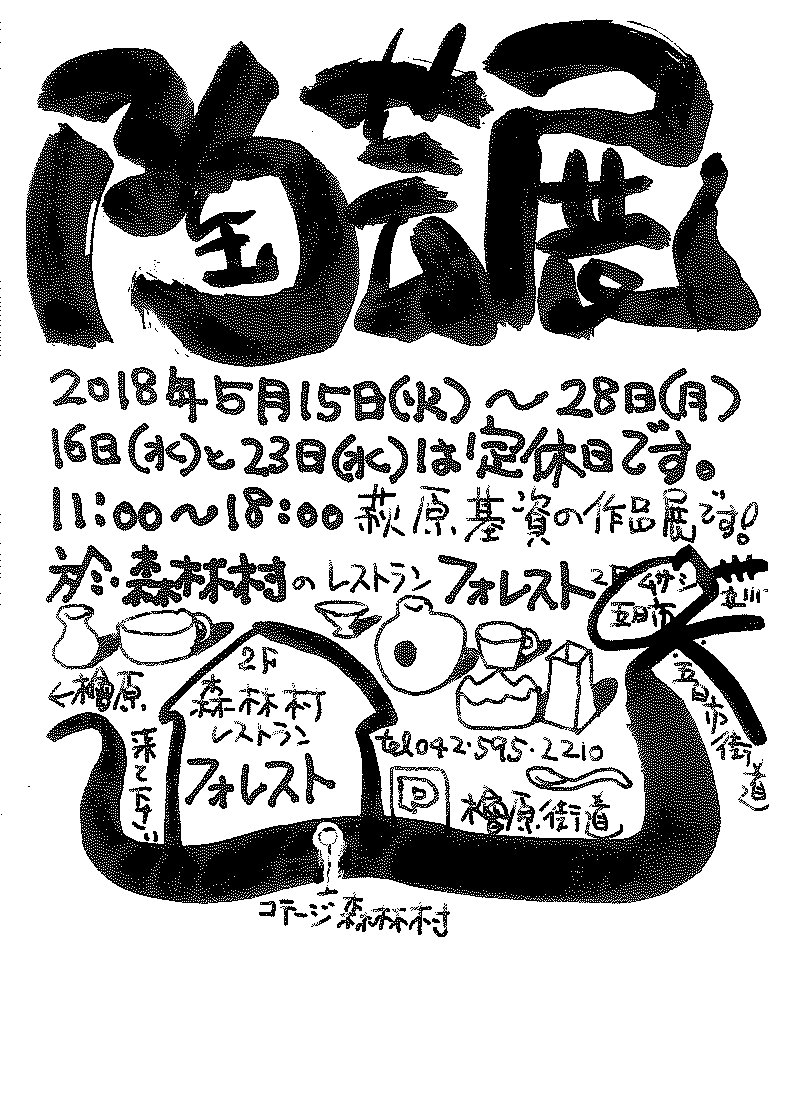 陶芸展
2018年5月15日(火)〜28日(月)
16日(水)と23日(水)は定休日です。
11:00〜18:00 萩原基資の作品展です!
於:森林村のレストランフォレスト2F
ムサシ五日市
立川
←檜原
2F
森林村
レストラン
フォレスト
来て下さい
tel042・595・2210
P
檜原街道
五日市街道
コテージ森林村